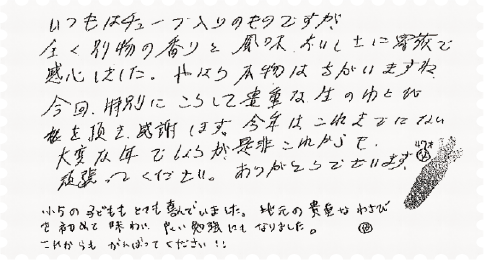 いつもはチューブ入りのものですが
全く別物の香りと風味 おいしさに家族で
感心しました。やはり本物はちがいますね
今回、特別にこうして貴重な生のわさび
を頂き、感謝します。今年はこれまでにない
大変な年でしょうが是非これからも
頑張ってください。ありがとうございます。
小5の子どももとても喜んでいました。地元の貴重なわさび
を初めて味わい 良い勉強にもなりました。
これからも がんばってください!!